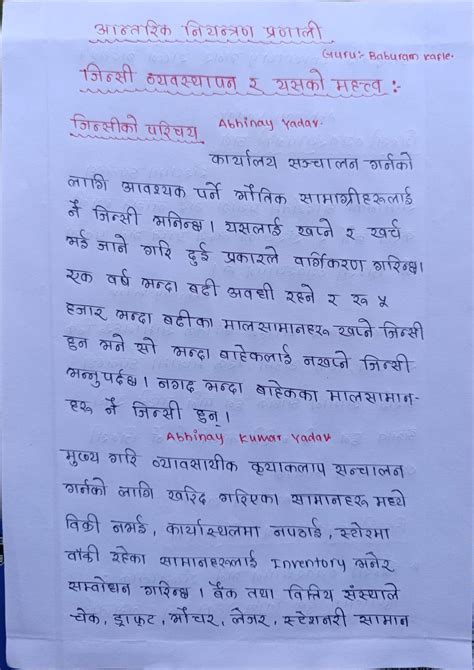 आन्तरिक नियन्त्रण प्रणाली
Guru:- Baburam Kafle.
जिन्सी व्यवस्थापन र यसको महत्त्व :-
जिन्सीको परिचय Abhinay Yadav.
कार्यालय सञ्चालन गर्नको
लागि आवश्यक पर्ने भौतिक सामाग्रीहरूलाई
नै जिन्सी भनिन्छ। यसलाई खप्ने र खर्च
भई जाने गरि दुई प्रकारले वर्गिकरण गरिन्छ।
एक वर्ष भन्दा बढी अवधी रहने र रू ५
हजार भन्दा बढीका मालसामानहरू खप्ने जिन्सी
हुन भने सो भन्दा बाहेकलाई नखप्ने जिन्सी
भन्नुपर्दछ। नगद भन्दा बाहेकका मालसामान-
हरू नै जिन्सी हुन्।
Abhinay Kumar Yadav
मुख्य गरि व्यावसायीक कृयाकलाप सन्चालन
गर्नको लागि खरिद गरिएका सामानहरू मध्ये
विक्री नभई, कार्यास्थलमा नपठाई, स्टोरमा
बाँकी रहेका सामानहरूलाई Inventory भनेर
सम्वोधन गरिन्छ। बैंक तथा वित्तिय संस्थाले
चेक, ड्राफ्ट, भौचर, लेजर, स्टेशनरी सामान